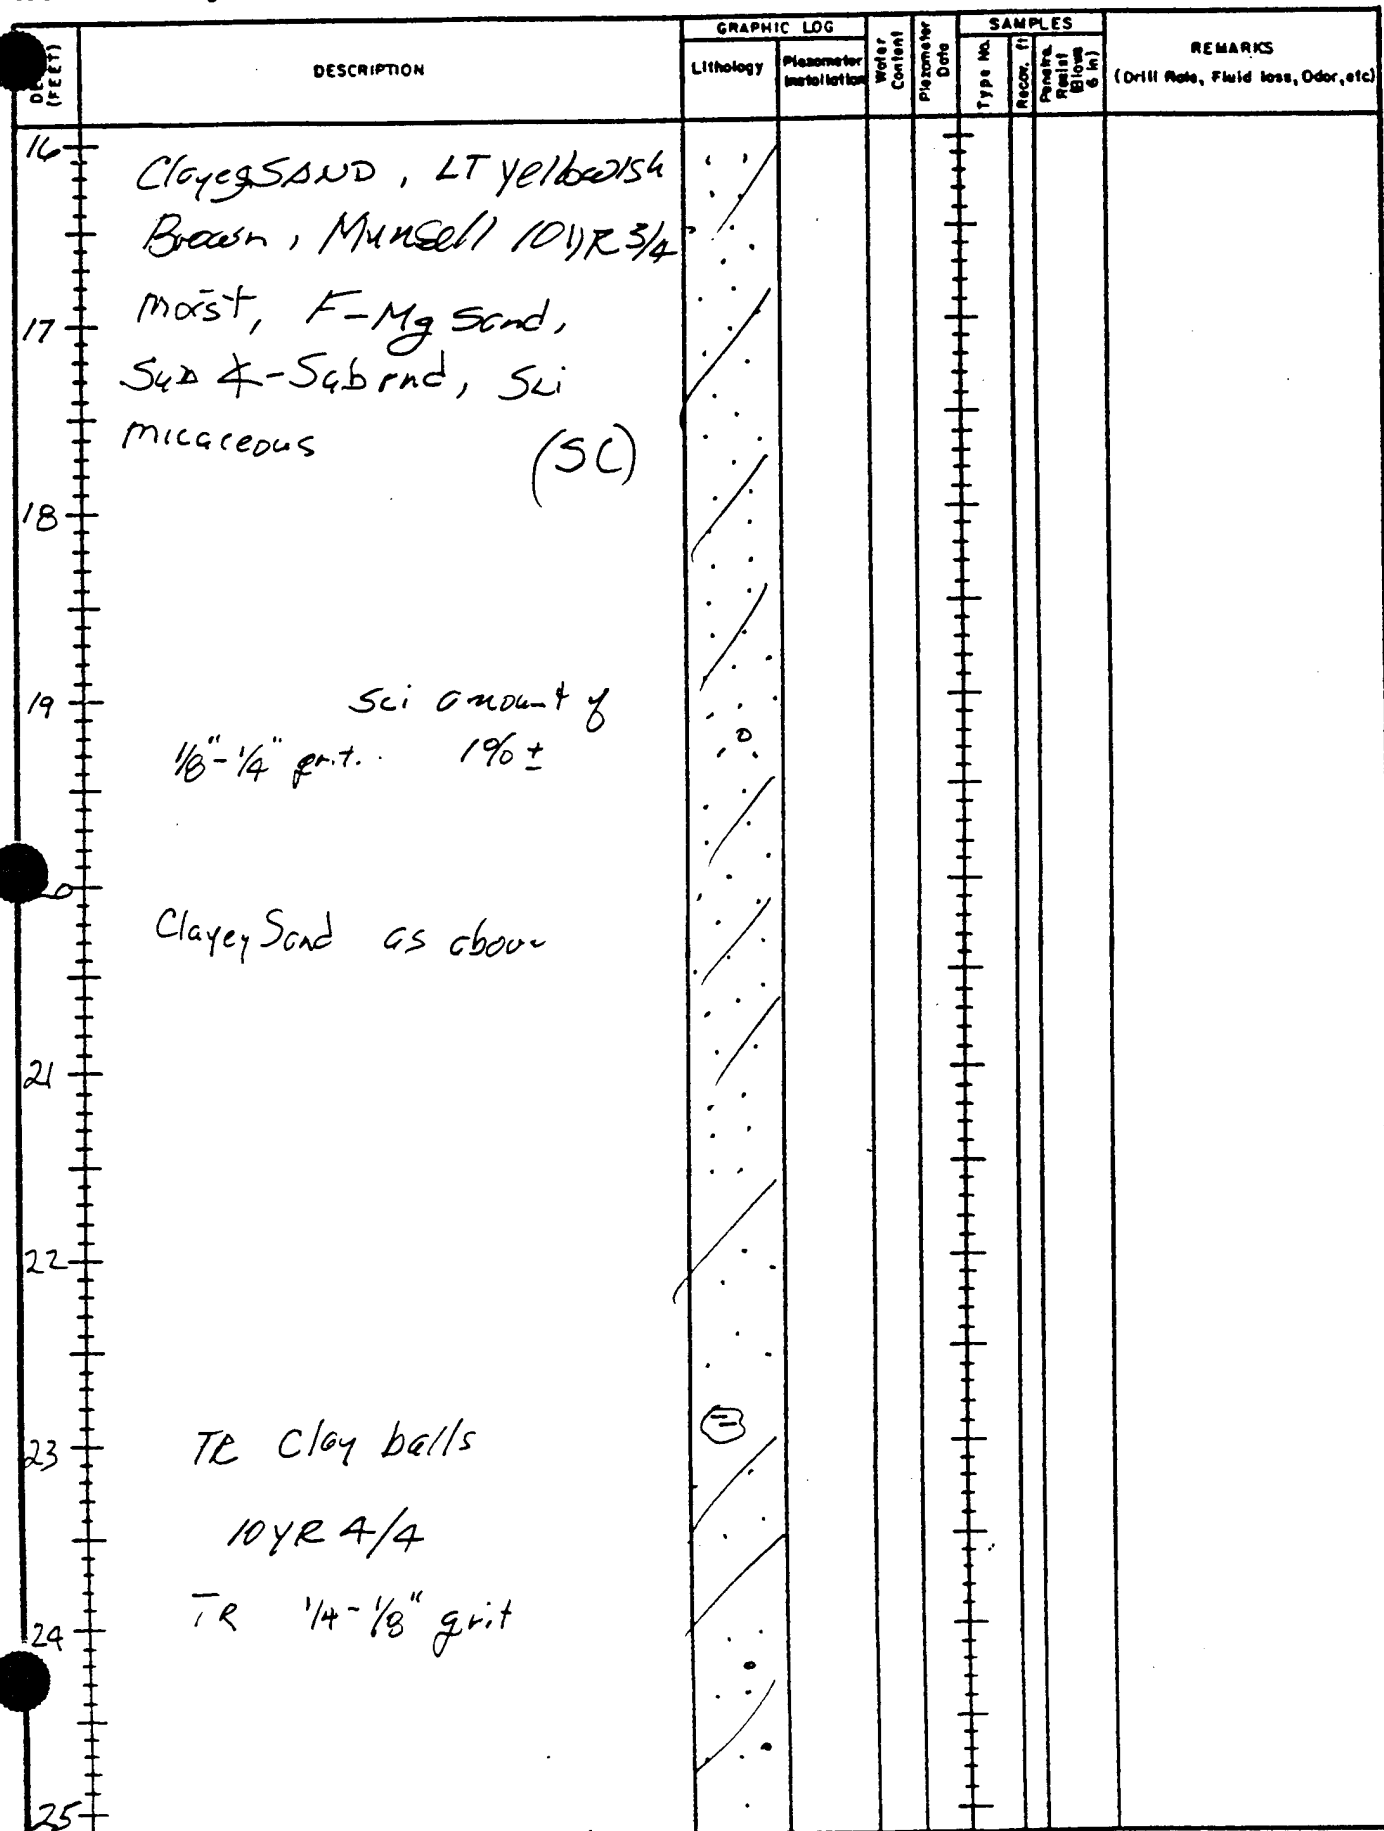 DESCRIPTION
GRAPHIC LOG
Lithology
Piezometer Installation
Water Content
Piezometer Data
SAMPLES
Type No.
Recov. ft
Penetra. Resist (Blows 6 in)
REMARKS
(Drill Rate, Fluid loss, Odor, etc)
(FEET)
16
Clayey SAND, LT Yellowish
Brown, Munsell 10YR 3/4
moist, F-Mg Sand,
17
Sub ∡-Subrnd, Sli
micaceous (SC)
18
19
Sli amount of
1/8"-1/4" grit. 1% ±
20
Clayey Sand as above
21
22
23
TR Clay balls
10YR 4/4
TR 1/4-1/8" grit
24
25